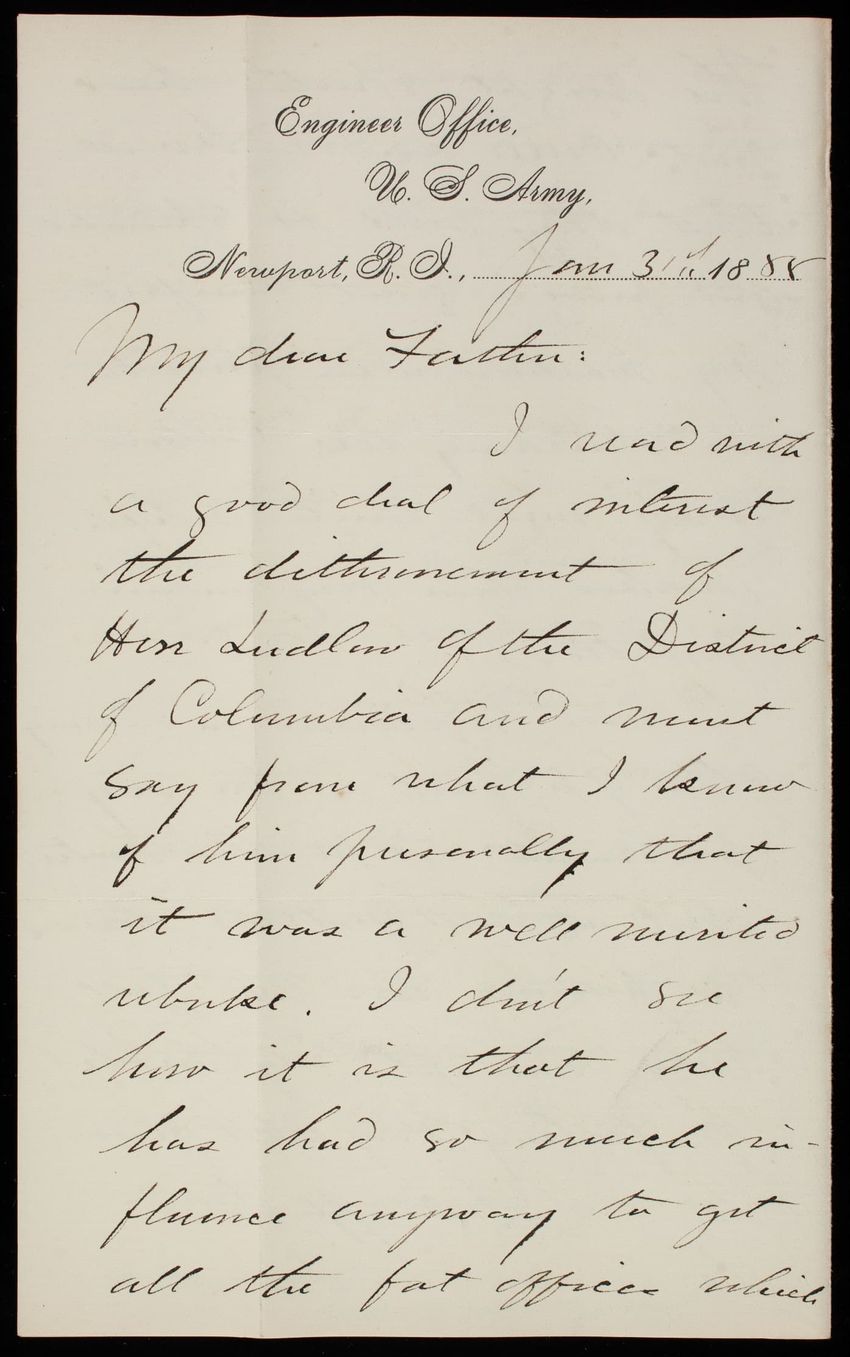 Engineer Office,
U. S. Army,
Newport, R. I., Jan 31st 1888
My dear Father:
I read with
a good deal of interest
the dethronement of
Hon Ludlow of the District
of Columbia and must
say from what I know
of him personally that
it was a well merited
rebuke. I don't see
how it is that he
has had so much in-
fluence anyway to get
all the fat offices which